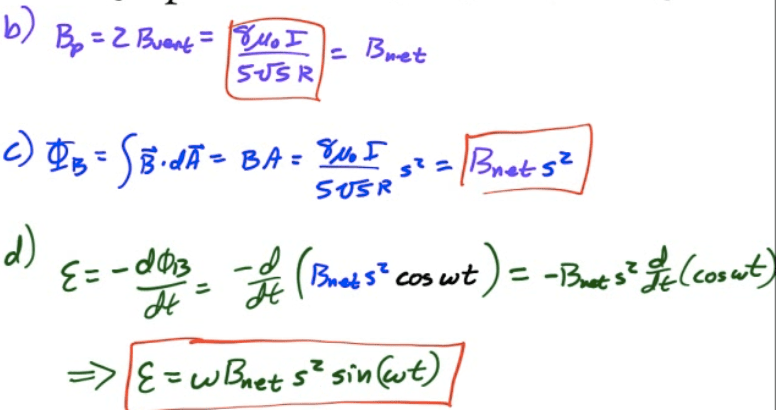 b) B_p = 2 B_vert = 8μ₀I / 5√5 R = B_net
c) Φ_B = ∫ B⃗ · dA⃗ = BA = 8μ₀I / 5√5 R s² = B_net s²
d) ε = - dΦ_B / dt = -d / dt (B_net s² cos ωt) = -B_net s² d / dt (cos ωt)
⇒ ε = ω B_net s² sin(ωt)